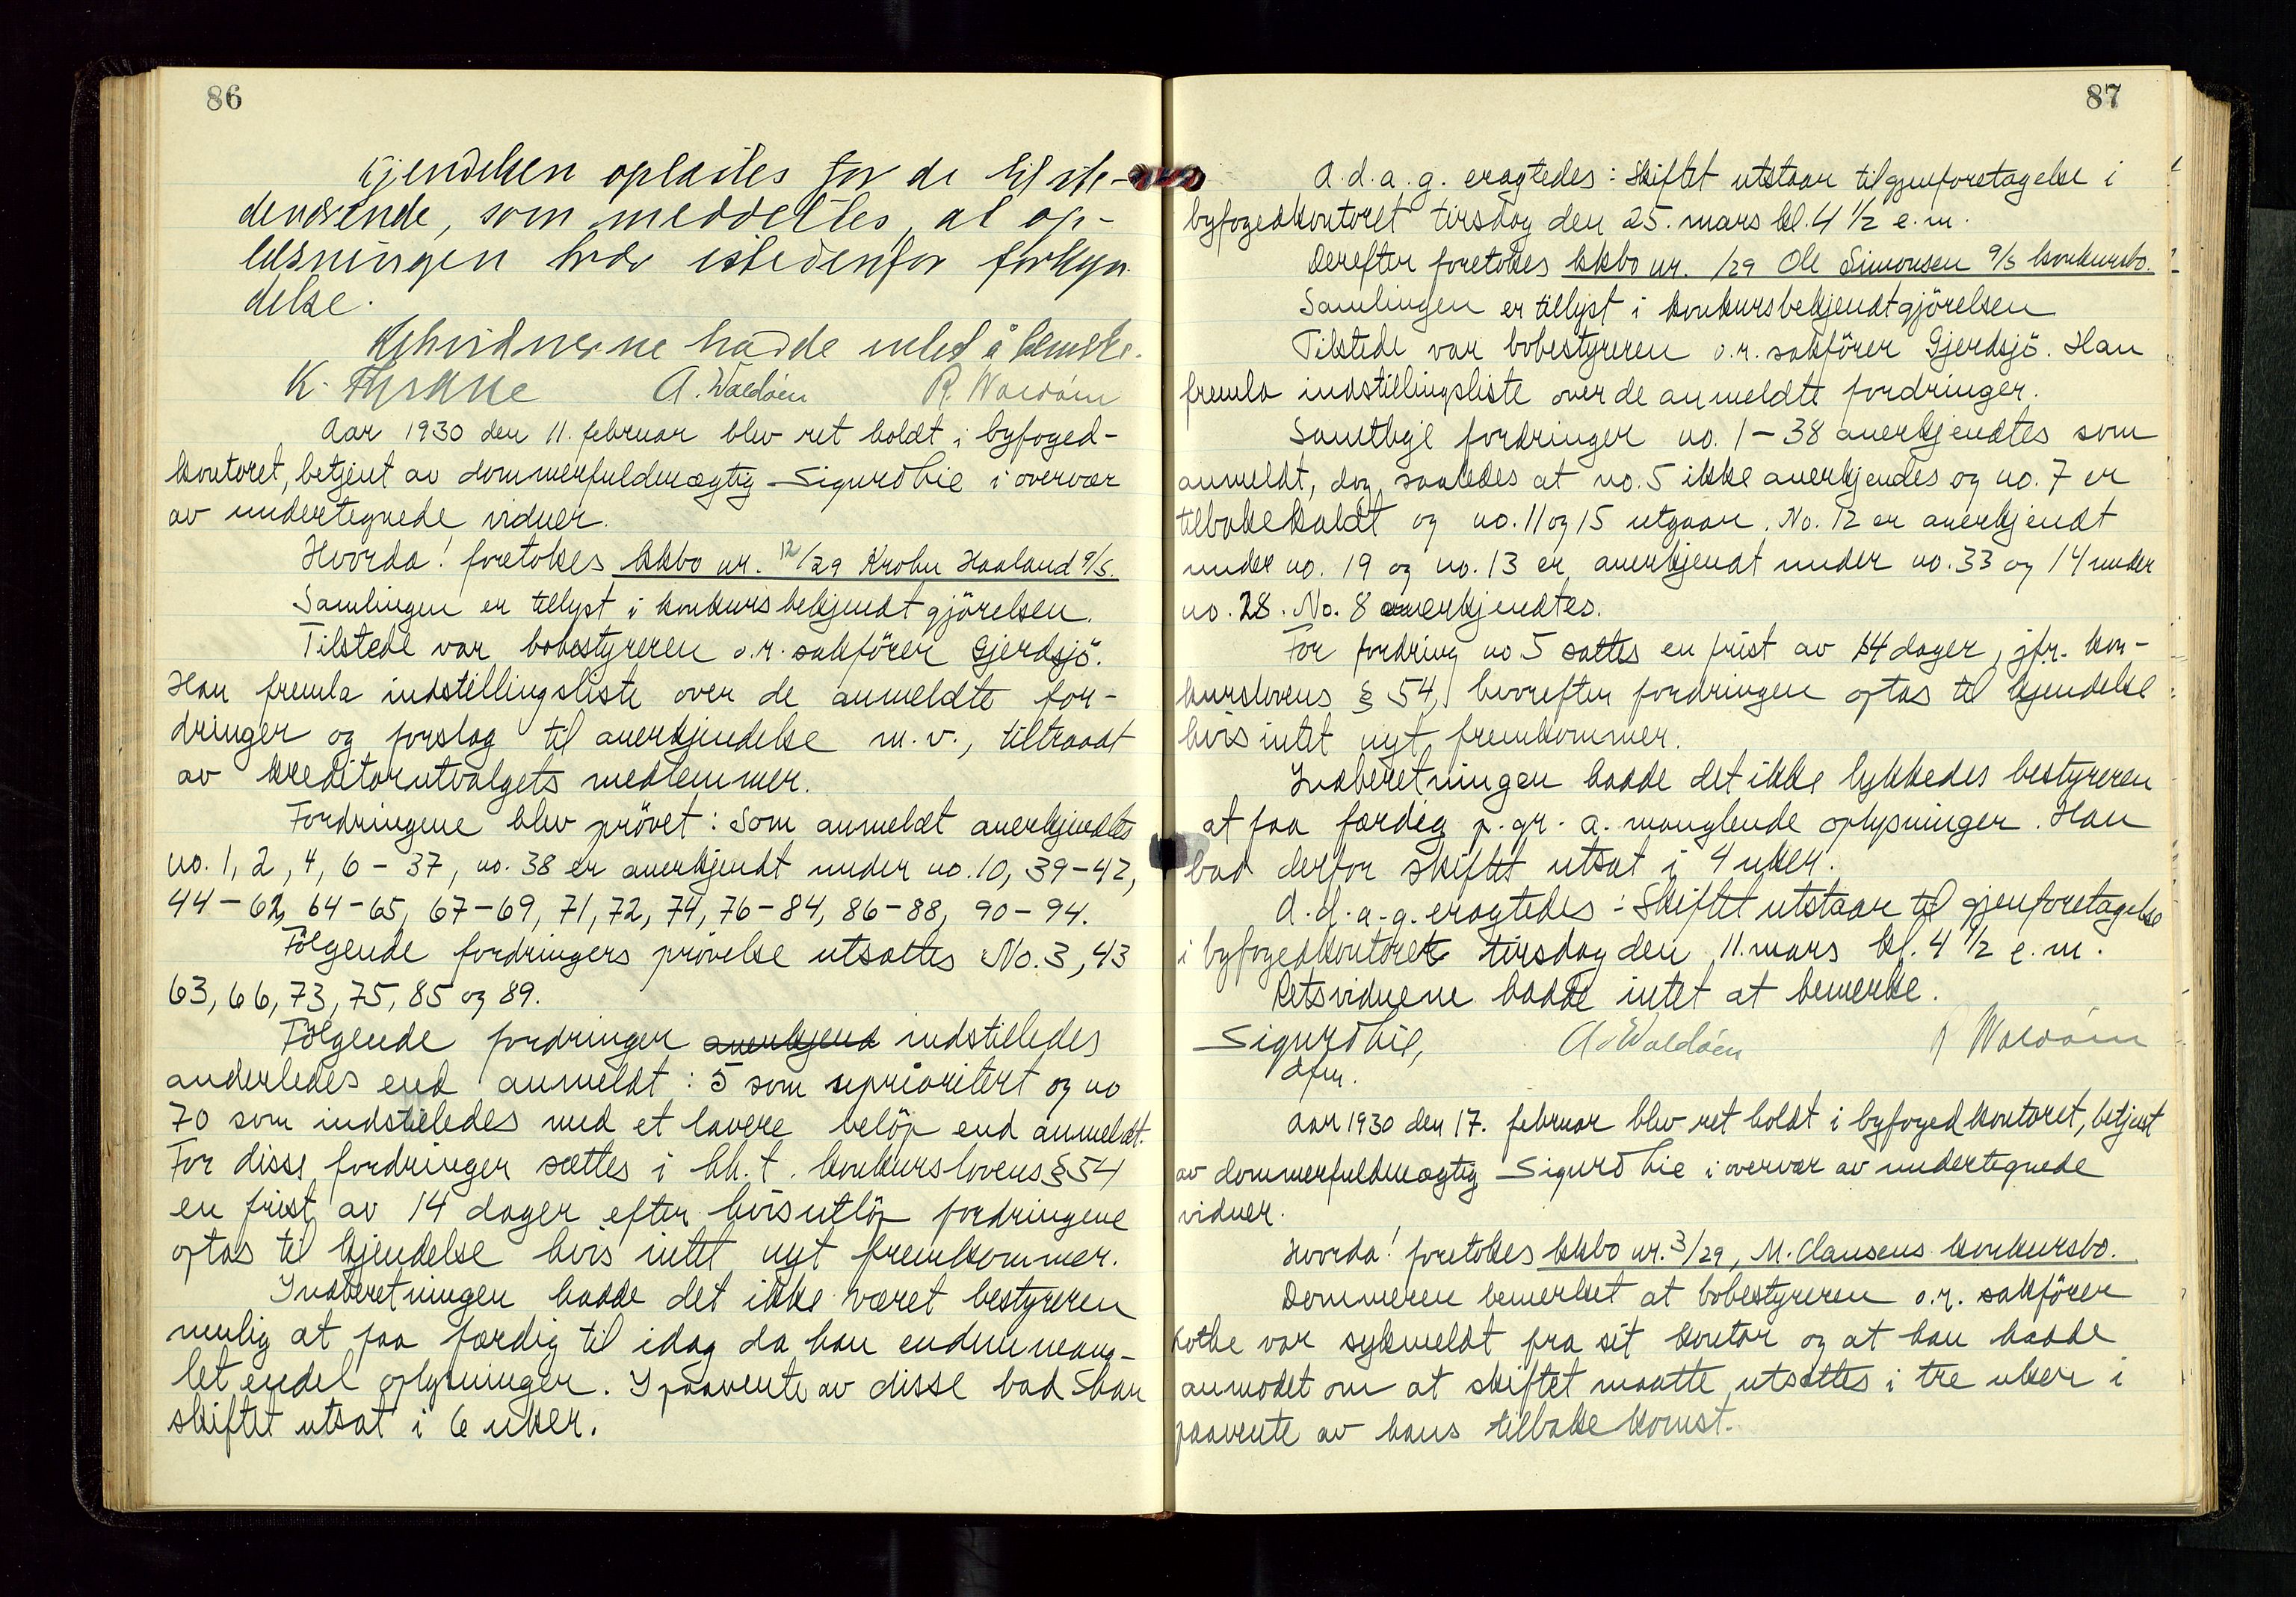 86
Kjendelsen oplæstes for de tilste-
deværende, som meddeltes, at op-
læsningen træder istedenfor forkyn-
delse.
Retsvidnerne hadde intet å bemerke.
K. Thrane A. Waldóen R. Waldóen
Aar 1930 den 11. februar blev ret holdt i byfoged-
kontoret, betjent av dommerfuldmægtig Sigurd Lie i overvær
av undertegnede vidner.
Hvorda! foretokes kkbo nr. 12/29 Krohn Haaland A/S.
Samlingen er tillyst i konkursbekjendtgjörelsen.
Tilstede var bobestyreren o.r. sakförer Gjerdsjö.
Han fremla indstillingsliste over de anmeldte for-
dringer og forslag til anerkjendelse m.v., tiltraadt
av kreditorutvalgets medlemmer.
Fordringene blev prövet: Som anmeldt anerkjendtes
no. 1, 2, 4, 6 - 37, no. 38 er anerkjendt under no. 10, 39-42,
44-62, 64-65, 67-69, 71, 72, 74, 76-84, 86-88, 90-94.
Fölgende fordringers prövelse utsattes No. 3, 43
63, 66, 73, 75, 85 og 89.
Fölgende fordringer anerkjend indstilledes
anderledes end anmeldt: 5 som uprioritert og no
70 som indstilledes med et lavere belöp end anmeldt.
For disse fordringer sættes i hh.t. konkurslovens § 54
en frist av 14 dager efter hvis utlöp fordringene
optas til kjendelse hvis intet nyt fremkommer.
Indberetningen hadde det ikke været bestyreren
mulig at faa færdig til idag da han endnu mang-
let endel oplysninger. I paavente av disse bad han
skiftet utsat i 6 uker.
87
A.d.a.g. eragtedes: Skiftet utstaar til gjenforetagelse i
byfogedkontoret tirsdag den 25. mars kl. 4 1/2 e.m.
Derefter foretokes kkbo nr. /29 Ole Simonsen A/S konkursbo.
Samlingen er tillyst i konkursbekjendtgjörelsen
Tilstede var bobestyreren o.r. sakförer Gjerdsjö. Han
fremla indstillingsliste over de anmeldte fordringer.
Samtlige fordringer no. 1-38 anerkjendtes som
anmeldt, dog saaledes at no. 5 ikke anerkjendes og no. 7 er
tilbakekaldt og no. 11 og 15 utgaar. No. 12 er anerkjendt
under no. 19 og no. 13 er anerkjendt under no. 33 og 14 under
no. 28. No. 8 anerkjendtes.
For fordring no 5 sattes en frist av 14 dager, jfr. kon-
kurslovens § 54, hvorefter fordringen optas til kjendelse
hvis intet nyt fremkommer.
Indberetningen hadde det ikke lykkedes bestyreren
at faa færdig p. gr. a. manglende oplysninger. Han
bad derfor skiftet utsat i 4 uker.
A.d.a.g. eragtedes: Skiftet utstaar til gjenforetagelse
i byfogedkontoret tirsdag den 11. mars kl. 4 1/2 e.m.
Retsvidnene hadde intet at bemerke.
Sigurd Lie, A. Waldóen R Waldóen
dfm.
Aar 1930 den 17. februar blev ret holdt i byfogedkontoret, betjent
av dommerfuldmægtig Sigurd Lie i overvær av undertegnede
vidner.
Hvorda! foretokes kkbo nr. 3/29, M. Clausens konkursbo.
Dommeren bemerket at bobestyreren o.r. sakförer
var sykmeldt fra sit kontor og at han hadde
anmodet om at skiftet maatte utsættes i tre uker i
paavente av hans tilbakekomst.